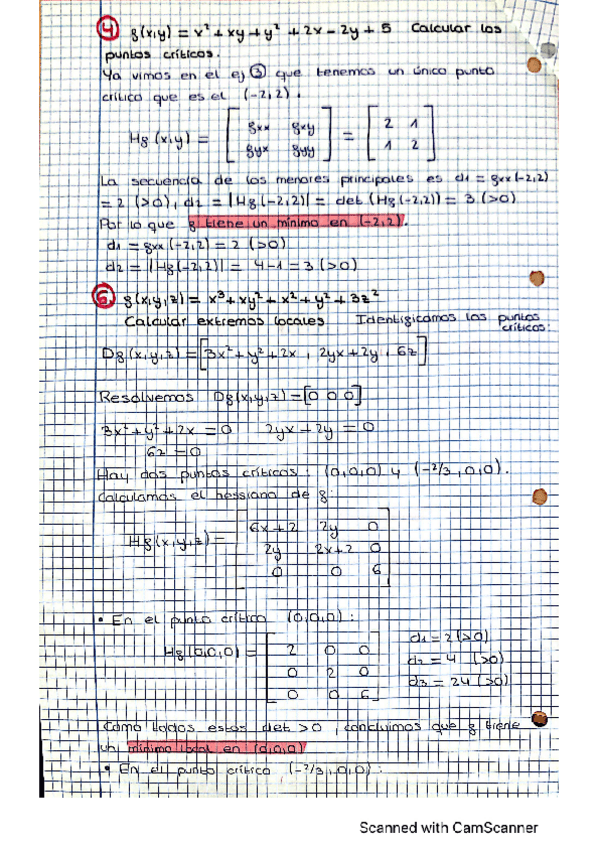 ④ f(x,y) = x² + xy + y² + 2x - 2y + 5 Calcular los
puntos críticos.
Ya vimos en el ej ③ que tenemos un único punto
crítico que es el (-2,2).
Hf (x,y) = [ fxx fxy ; fyx fyy ] = [ 2 1 ; 1 2 ]
La secuencia de los menores principales es d1 = fxx(-2,2)
= 2 (>0), d2 = |Hf(-2,2)| = det (Hf(-2,2)) = 3 (>0)
Por lo que f tiene un mínimo en (-2,2).
d1 = fxx (-2,2) = 2 (>0)
d2 = |Hf(-2,2)| = 4-1 = 3 (>0)
⑥ f(x,y,z) = x³ + xy² + x² + y² + 3z²
Calcular extremos locales Identificamos los puntos
críticos:
Df (x,y,z) = [3x² + y² + 2x , 2yx + 2y , 6z]
Resolvemos Df(x,y,z) = [0 0 0]
3x² + y² + 2x = 0 2yx + 2y = 0
6z = 0
Hay dos puntos críticos: (0,0,0) y (-2/3, 0,0).
Calculamos el hessiano de f:
Hf(x,y,z) = [ 6x+2 2y 0 ; 2y 2x+2 0 ; 0 0 6 ]
• En el punto crítico (0,0,0):
Hf(0,0,0) = [ 2 0 0 ; 0 2 0 ; 0 0 6 ]
d1 = 2 (>0)
d2 = 4 (>0)
d3 = 24 (>0)
Como todos estos det >0, concluimos que f tiene
un mínimo local en (0,0,0)
• En el punto crítico (-2/3, 0,0):
Scanned with CamScanner